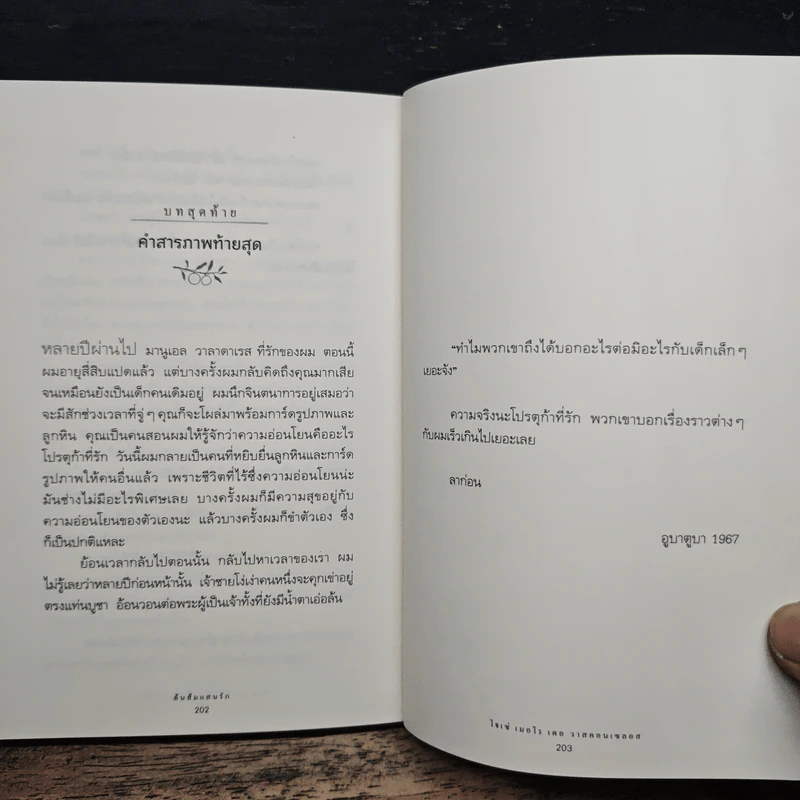 บทสุดท้าย
คำสารภาพท้ายสุด
หลายปีผ่านไป มานูเอล วาลาดาเรส ที่รักของผม ตอนนี้
ผมอายุสี่สิบแปดแล้ว แต่บางครั้งผมกลับคิดถึงคุณมากเสีย
จนเหมือนยังเป็นเด็กคนเดิมอยู่ ผมนึกจินตนาการอยู่เสมอว่า
จะมีสักช่วงเวลาที่จู่ๆ คุณก็จะโผล่มาพร้อมการ์ดรูปภาพและ
ลูกหิน คุณเป็นคนสอนผมให้รู้จักว่าความอ่อนโยนคืออะไร
โปรตุก้าที่รัก วันนี้ผมกลายเป็นคนที่หยิบยื่นลูกหินและการ์ด
รูปภาพให้คนอื่นแล้ว เพราะชีวิตที่ไร้ซึ่งความอ่อนโยนน่ะ
มันช่างไม่มีอะไรพิเศษเลย บางครั้งผมก็มีความสุขอยู่กับ
ความอ่อนโยนของตัวเองนะ แล้วบางครั้งผมก็ขำตัวเอง ซึ่ง
ก็เป็นปกติแหละ
ย้อนเวลากลับไปตอนนั้น กลับไปหาเวลาของเรา ผม
ไม่รู้เลยว่าหลายปีก่อนหน้านั้น เจ้าชายโง่เง่าคนหนึ่งจะคุกเข่าอยู่
ตรงแท่นบูชา อ้อนวอนต่อพระผู้เป็นเจ้าทั้งที่ยังมีน้ำตาเอ่อล้น
ต้นส้มแสนรัก
202
“ทำไมพวกเขาถึงได้บอกอะไรต่อมิอะไรกับเด็กเล็กๆ
เยอะจัง”
ความจริงนะโปรตุก้าที่รัก พวกเขาบอกเรื่องราวต่างๆ
กับผมเร็วเกินไปเยอะเลย
ลาก่อน
อูบาตูบา 1967
โจเซ่ เมอโร เดอ วาสคอนเซลอส
203